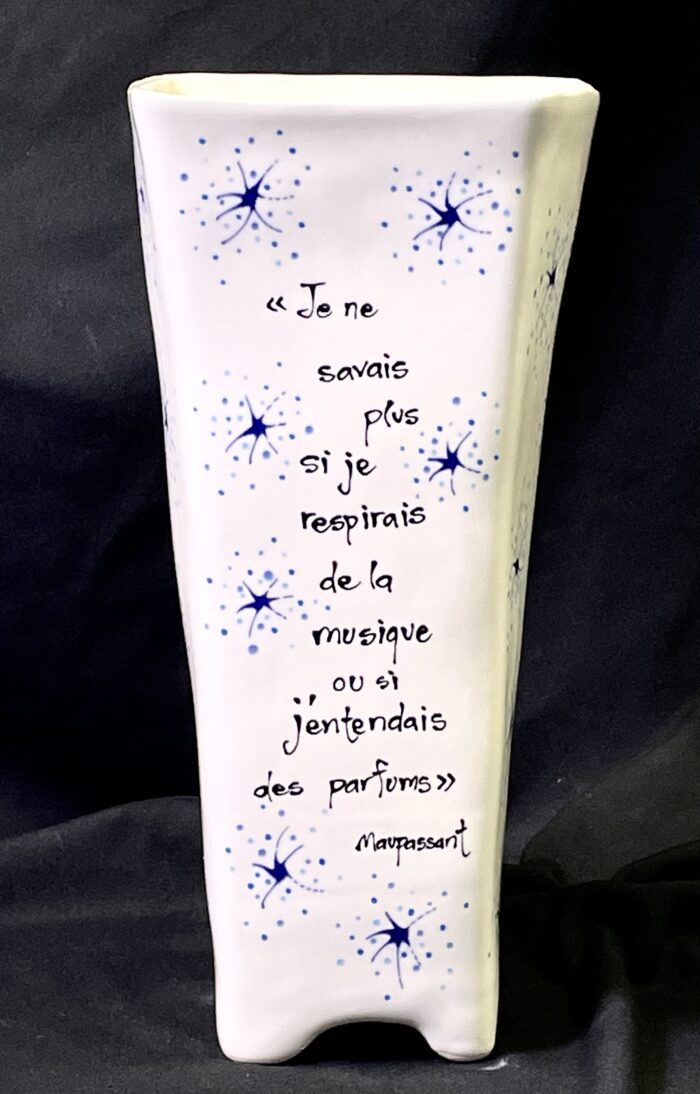 « Je ne
savais
plus
si je
respirais
de la
musique
ou si
j'entendais
des parfums»
Maupassant